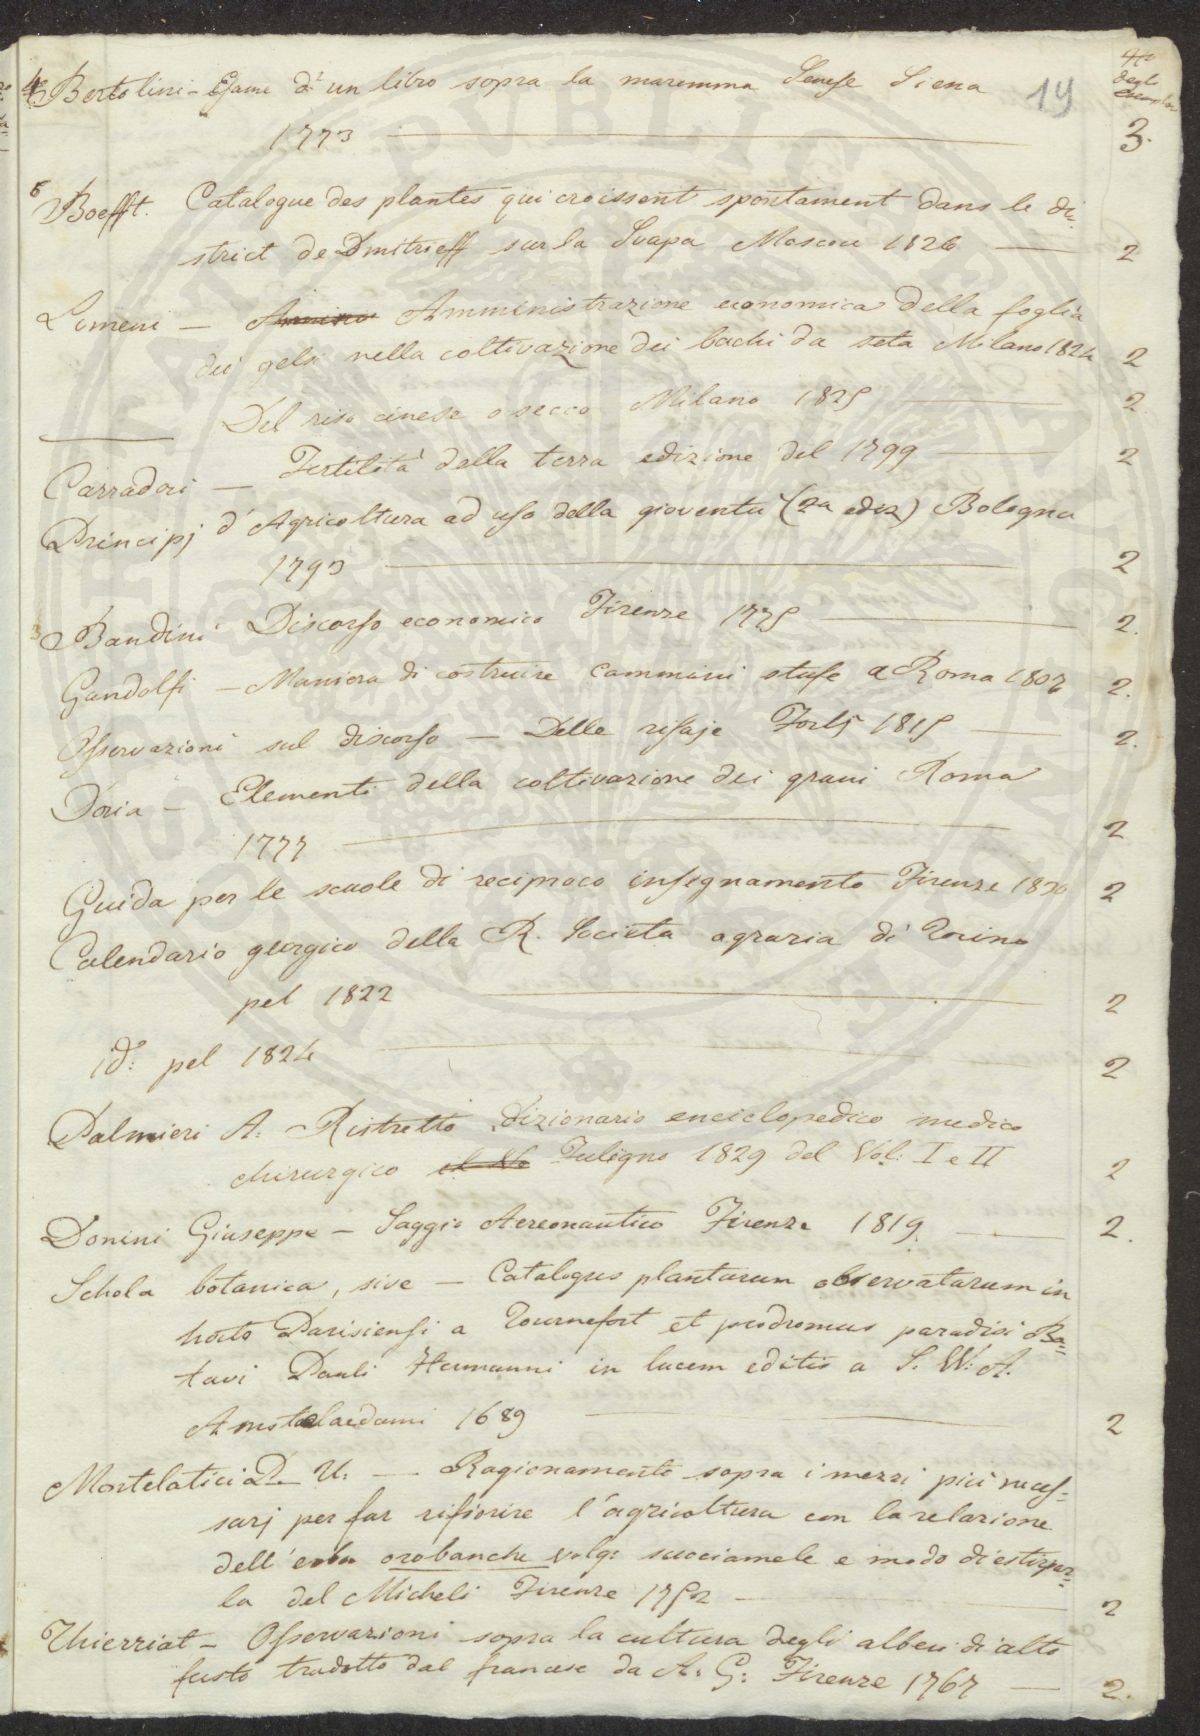 Bertolini - Esame d'un libro sopra la maremma Senese Siena 19
1773 3.
degli
Boefft. Catalogue des plantes qui croissent spontament dans le di-
strict de Dmitrieff sur la Svapa Moscou 1826 2
Lomeni - Amminis Amministrazione economica della foglia
dei gelsi nella coltivazione dei bachi da seta Milano 1824 2
Del riso cinese o secco Milano 1825 2.
Carradori - Fertilità della terra edizione del 1799 2
Principj d'Agricoltura ad uso della gioventu (2a ediz) Bologna
1793 2
Bandini Discorso economico Firenze 1775 2.
Gandolfi - Maniera di costruire cammini stufe a Roma 1807 2.
Osservazioni sul discorso - Delle risaje Forlj 1815 2.
Doria - Elementi della coltivazione dei grani Roma
1777 2
Guida per le scuole di reciproco insegnamento Firenze 1820 2
Calendario georgico della R. Societa agraria di Torino
pel 1822 2
id: pel 1824 2
Palmieri A: Ristretto Dizionario enciclopedico medico
chirurgico Fuligno 1829 del Vol: I e II 2
Donini Giuseppe - Saggio Aereonautico Firenze 1819. 2.
Schola botanica, sive - Catalogus plantarum observatarum in
horto Parisiensi a Tournefort et prodromus paradisi Ba=
tavi Pauli Hermanni in lucem editis a S. W: A.
Amstelaedami 1689 2
Montelatici D. U: - Ragionamento sopra i mezzi più neces=
sarj per far rifiorire l'agricoltura con la relazione
dell'erba orobanche volg: succiamele e modo di estirpar=
la del Micheli Firenze 1752 2
Thierriat - Osservazioni sopra la cultura degli alberi di alto
fusto tradotto dal francese da A: G: Firenze 1767 2.